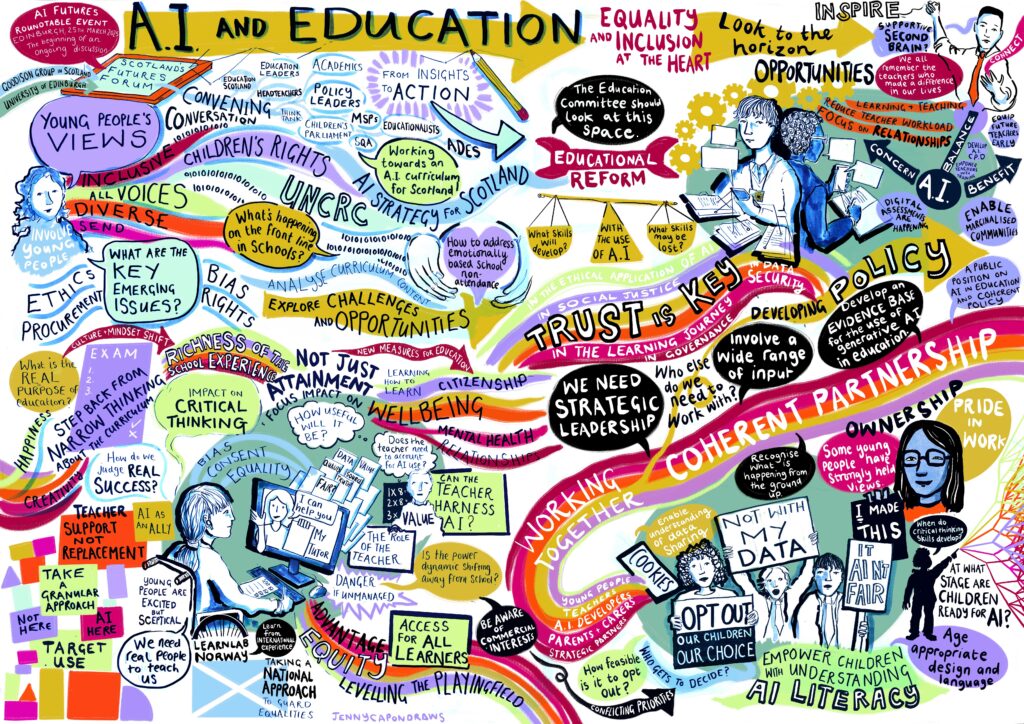 AI FUTURES
ROUNDTABLE EVENT
EDINBURGH, 25TH MARCH 2025
The beginning of an
ongoing discussion
GOODISON GROUP IN SCOTLAND
UNIVERSITY OF EDINBURGH
SCOTLAND'S
FUTURES
FORUM
A.I AND EDUCATION
EQUALITY
AND INCLUSION
AT THE HEART
LOOK to the
horizon
OPPORTUNITIES
INSPIRE
SUPPORTIVE
SECOND
BRAIN?
We all
remember the
teachers who
made a difference
in our lives
CONNECT
YOUNG PEOPLE'S
VIEWS
CONVENING
CONVERSATION
EDUCATION
SCOTLAND
EDUCATION
LEADERS
HEADTEACHERS
THINK
TANK
ACADEMICS
POLICY
LEADERS
CHILDREN'S
PARLIAMENT
MSPs
SQA
EDUCATIONALISTS
ADES
FROM INSIGHTS
TO ACTION
Working
towards an
A.I. curriculum
for Scotland
The Education
Committee should
look at this
space.
EDUCATIONAL
REFORM
REDUCE TEACHER WORKLOAD
LEARNING + TEACHING
FOCUS ON RELATIONSHIPS
CONCERN
BALANCE
BENEFIT
A.I.
EQUIP
FUTURE
TEACHERS
EARLY
DEVELOP
A.I
C.P.D
DIGITAL
ASSESSMENTS
ARE
HAPPENING
ENABLE
MARGINALISED
COMMUNITIES
A PUBLIC
POSITION ON
A.I. IN EDUCATION
AND COHERENT
POLICY
INCLUSIVE
ALL VOICES
DIVERSE
SEND
INVOLVE
YOUNG
PEOPLE
CHILDREN'S RIGHTS
UNCRC
AI STRATEGY FOR SCOTLAND
What's happening
on the front line
in Schools?
WHAT ARE THE
KEY
EMERGING
ISSUES?
ETHICS
PROCUREMENT
BIAS
RIGHTS
ANALYSE CURRICULUM CONTENT
EXPLORE CHALLENGES
AND OPPORTUNITIES
How to address
emotionally
based School
non-
attendance
What Skills
will
develop?
WITH
THE USE
OF A.I
What Skills
may be
lost?
IN THE ETHICAL APPLICATION OF AI
IN SOCIAL JUSTICE
TRUST IS KEY
IN DATA
SECURITY
IN THE LEARNING JOURNEY
IN GOVERNANCE
DEVELOPING POLICY
Develop an
EVIDENCE BASE
for the use of
generative AI
in education.
CULTURE + MINDSET SHIFT
What is the
REAL
PURPOSE of
education?
EXAM
1.
2.
3.
STEP BACK FROM
NARROW THINKING
ABOUT THE CURRICULUM
HAPPINESS
CREATIVITY
RICHNESS OF THE
SCHOOL EXPERIENCE
IMPACT ON
CRITICAL
THINKING
How do we
Judge REAL
SUCCESS?
NEW MEASURES FOR EDUCATION
NOT JUST
ATTAINMENT
FOCUS IMPACT ON
LEARNING
HOW TO
LEARN
CITIZENSHIP
WELLBEING
MENTAL HEALTH
RELATIONSHIPS
WE NEED
STRATEGIC
LEADERSHIP
Who else
do we
need to
work with?
Involve a
wide range
of input
COHERENT PARTNERSHIP
WORKING
TOGETHER
YOUNG PEOPLE
TEACHERS
A.I DEVELOPERS
PARENTS + CARERS
STRATEGIC PARTNERS
BIAS
CONSENT
EQUALITY
HOW USEFUL
WILL IT
BE?
DATA
VALUE
FAIR?
I can
help you
MY
TUTOR
Does the
teacher need
to account
for AI use?
1X8=
2X8=
3X
VALUE
CAN THE
TEACHER
HARNESS
A.I?
THE ROLE
OF THE
TEACHER
DANGER
IF UNMANAGED
Is the power
dynamic shifting
away from School?
TEACHER
SUPPORT
NOT
REPLACEMENT
AI AS
AN ALLY
TAKE A
GRANULAR
APPROACH
NOT
HERE
AI
HERE
TARGET
USE
YOUNG
PEOPLE ARE
EXCITED
BUT
SCEPTICAL
We need
real People
to teach
us
LEARNLAB
NORWAY
Learn
from
INTERNATIONAL
experience
TAKING A
NATIONAL
APPROACH
TO GUARD
EQUALITIES
ADVANTAGE
EQUITY
ACCESS
FOR ALL
LEARNERS
LEVELLING THE PLAYINGFIELD
JENNYCAPONDRAWS
BE AWARE
OF
COMMERCIAL
INTERESTS
How feasible
is it to Opt
Out?
WHO GETS TO DECIDE?
CONFLICTING PRIORITIES
Enable
understanding
of data
Sharing
COOKIES
OPT OUT
OUR CHILDREN
OUR CHOICE
NOT WITH
MY
DATA
IT
AINT
FAIR
Recognise
what is
happening
from the
ground
up.
OWNERSHIP
PRIDE
IN
WORK
Some young
people have
Strongly held
views.
I
MADE
THIS
When do
critical thinking
Skills develop?
AT WHAT
STAGE ARE
CHILDREN
READY FOR AI?
Age
appropriate
design and
language
EMPOWER CHILDREN
WITH UNDERSTANDING
AI LITERACY